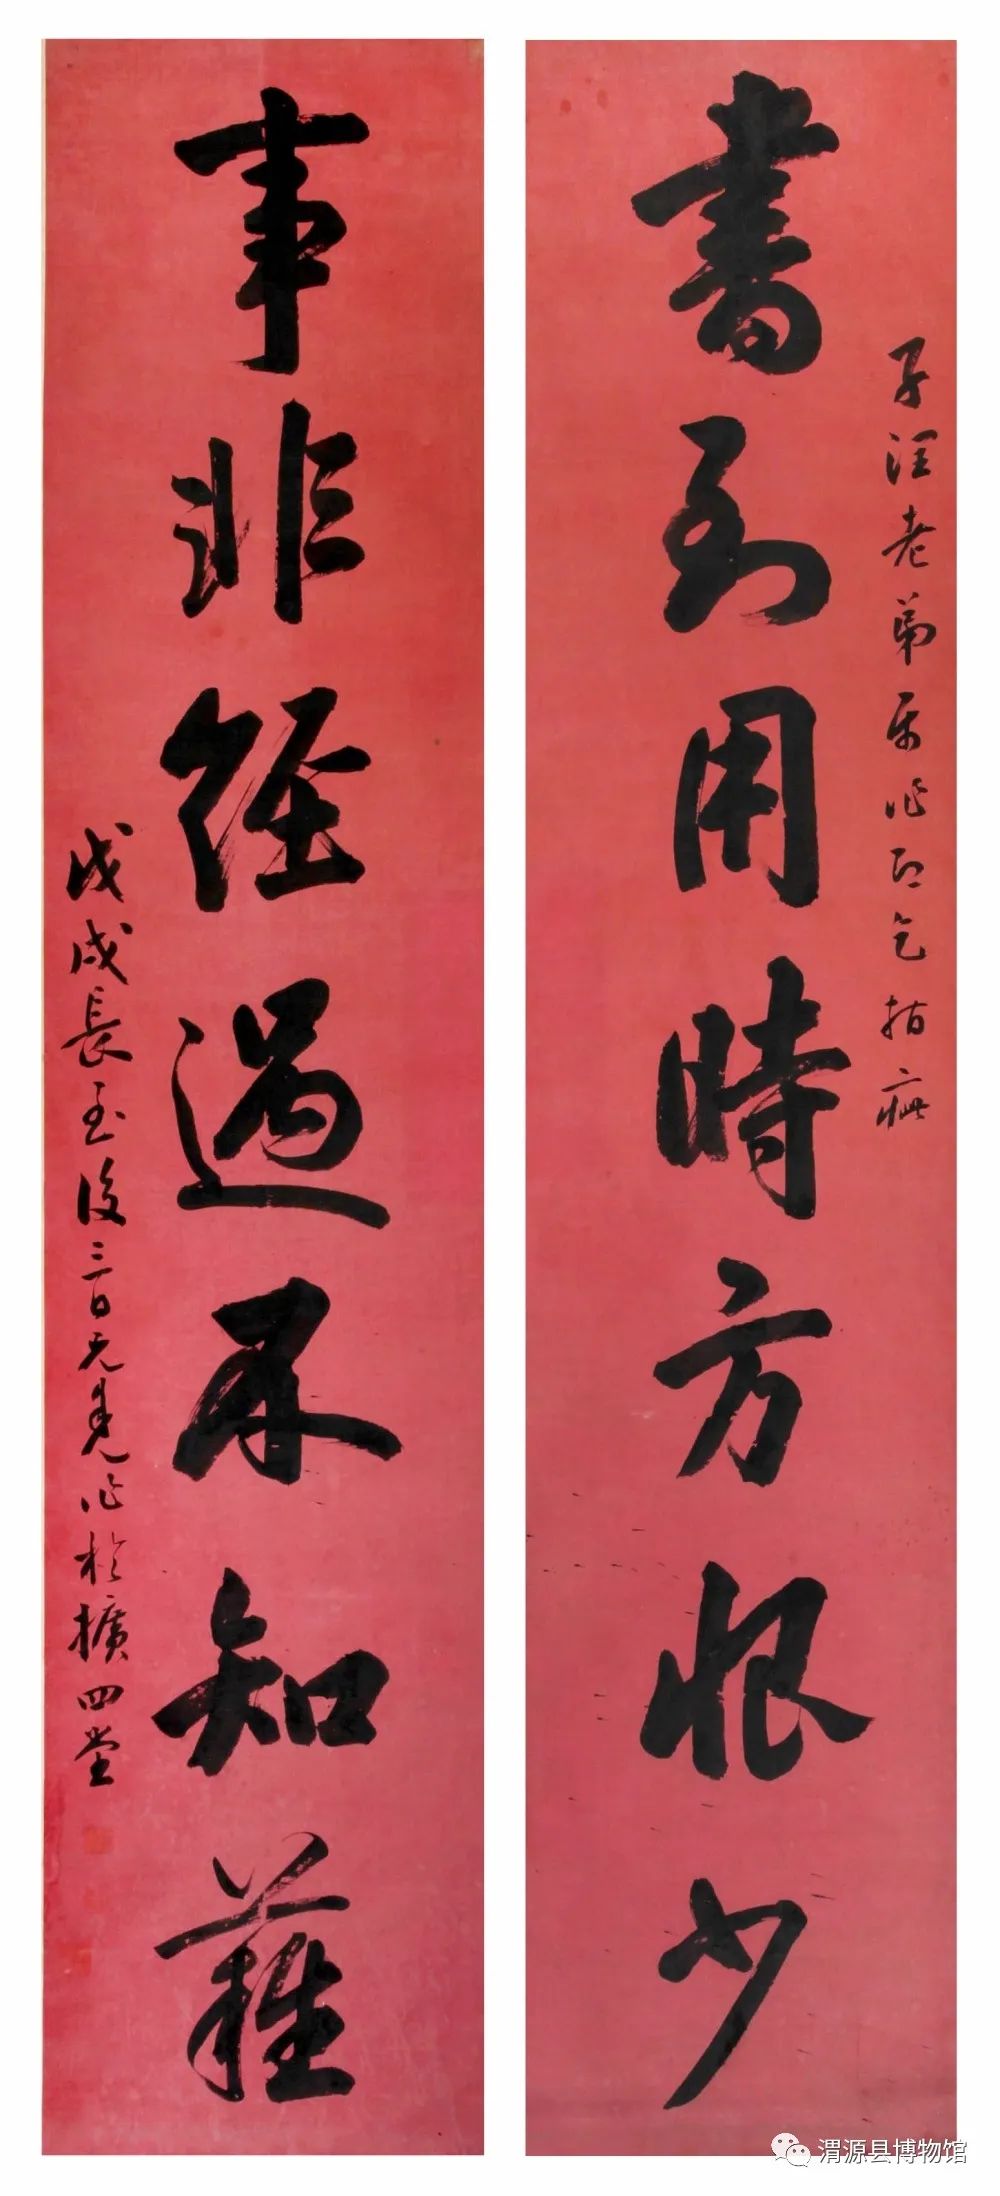 書到用時方恨少
子老弟屬作即乞指疵
事非經過不知難
戊戌長至後三日作於擴四堂
渭源县博物馆